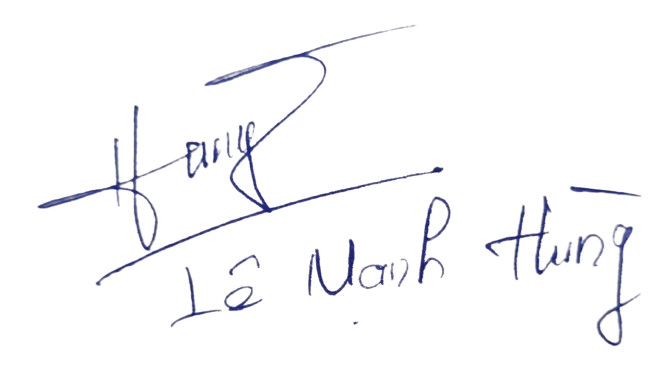 Hung
Lê Mạnh Hùng